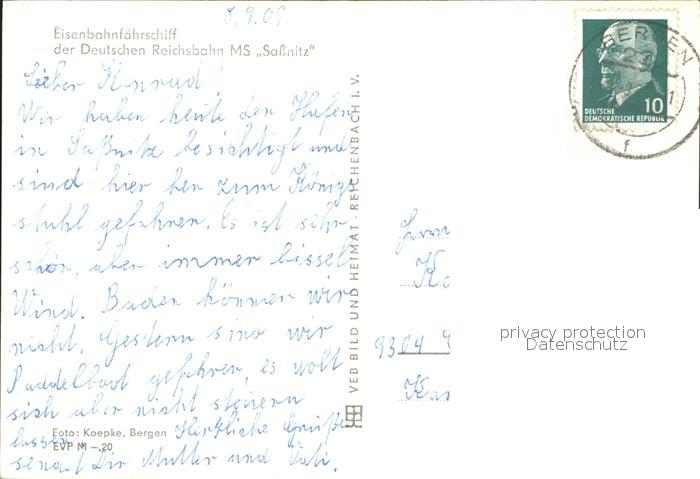 8.9.69
Eisenbahnfährschiff
der Deutschen Reichsbahn MS „Saßnitz"
Lieber Konrad!
Wir haben heute den Hafen
in Saßnitz besichtigt und
sind hier her zum Königs
stuhl gefahren. Es ist sehr
schön, aber immer bissel
Wind. Baden können wir
nicht. Gestern sind wir
Paddelboot gefahren, es wollt
sich aber nicht steuern
lassen. Herzliche Grüße
sendet Dir Mutter und Vati.
Foto: Koepke, Bergen
EVP M –.20
VEB BILD UND HEIMAT · REICHENBACH I. V.
BERGEN
f
DEUTSCHE
DEMOKRATISCHE REPUBLIK
10
Herrn
Ko
9304
privacy protection
Datenschutz